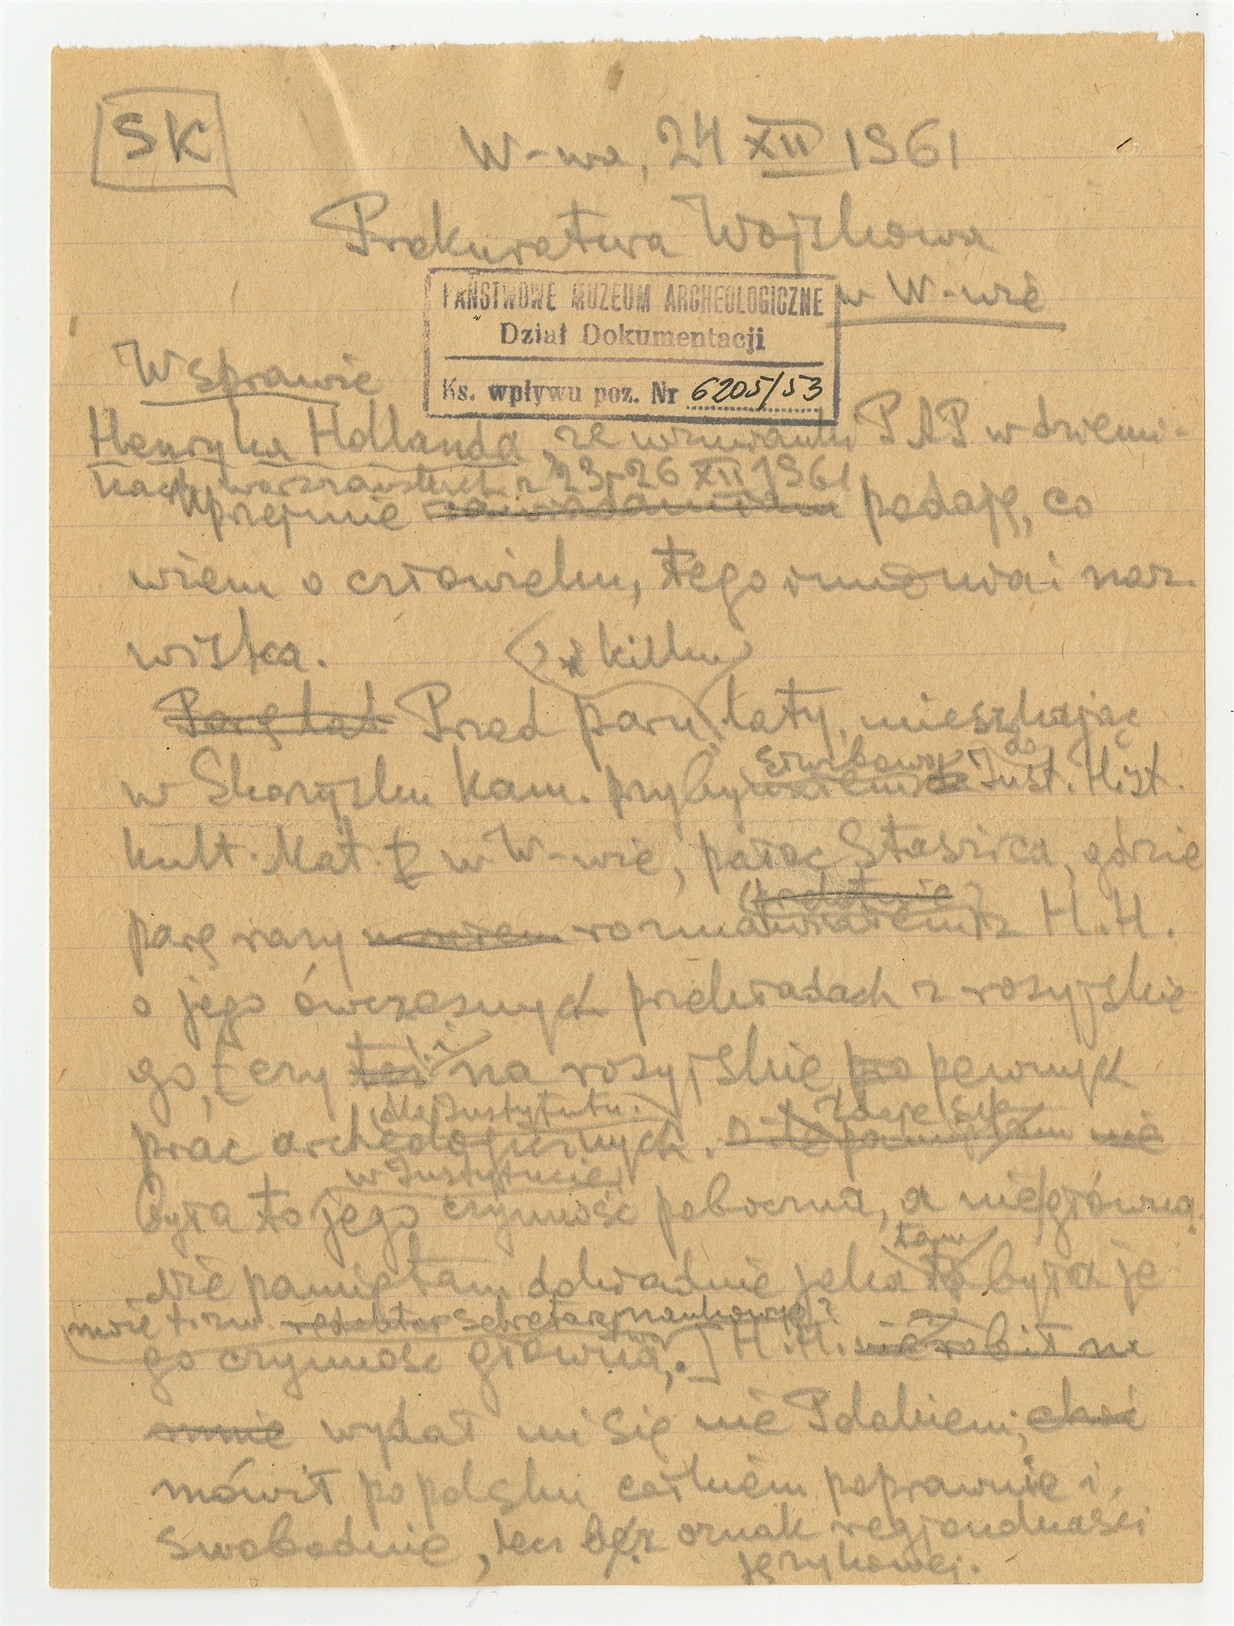 SK
W-wa, 24 XII 1961
Prokuratura Wojskowa
w W-wie
PAŃSTWOWE MUZEUM ARCHEOLOGICZNE
Dział Dokumentacji
Ks. wpływu poz. Nr 6205/53
W sprawie
Henryka Hollanda, ze wzmianki PAP w dzienni-
kach warszawskich z 23-26 XII 1961
Uprzejmie zawiadamiam podaję, co
wiem o człowieku, tego imienia i naz-
wiska.
kilku
Parę lat Przed paru laty, mieszkając
służbowo do
w Skarżysku Kam. przybywałem Inst. Hist.
Kult. Mat. w W-wie, pałac Staszica, gdzie
parę razy rozmawiałem z H.H.
o jego ówczesnych przekładach z rosyjskie-
go, czy też na rosyjskie pewnych
dla Instytutu. zdaje się
prac archeologicznych. O ile pamiętam nie
w Instytucie
Była to jego czynność poboczna, a nie główna.
tam
Nie pamiętam dokładnie jaka to była je-
może t. zw. redaktor sekretarz naukowy?
go czynność główna. H.H. nie robił na
mnie wydał mi się nie Polakiem; choć
mówił po polsku całkiem poprawnie i
swobodnie, lecz bez oznak regjonalności
językowej.